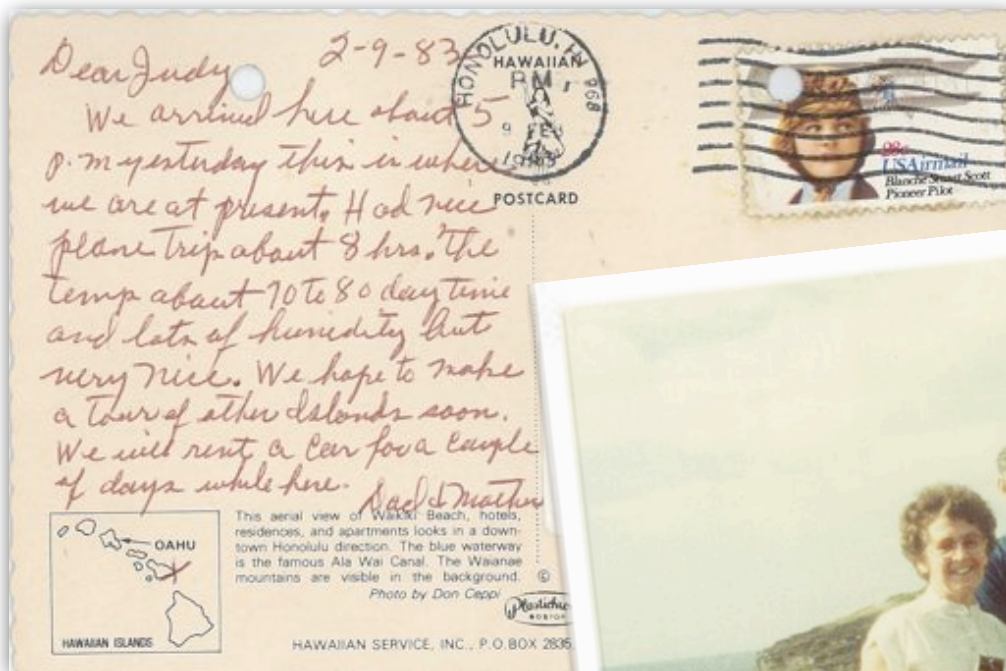 2-9-83
Dear Judy
We arrived here about 5
p.m yesterday this is where
we are at present. Had nice
plane trip about 8 hrs. The
temp about 70 to 80 day time
and lots of humidity but
very nice. We hope to make
a tour of other Islands soon.
We will rent a car for a couple
of days while here.
Dad & Mother
HONOLULU, HI 968
HAWAIIAN
PM
9 FEB
1983
POSTCARD
28c
USAirmail
Blanche Stuart Scott
Pioneer Pilot
OAHU
HAWAIIAN ISLANDS
This aerial view of Waikiki Beach, hotels,
residences, and apartments looks in a down-
town Honolulu direction. The blue waterway
is the famous Ala Wai Canal. The Waianae
mountains are visible in the background.
Photo by Don Ceppi
©
Plastichrome
BOSTON
HAWAIIAN SERVICE, INC., P.O.BOX 2835